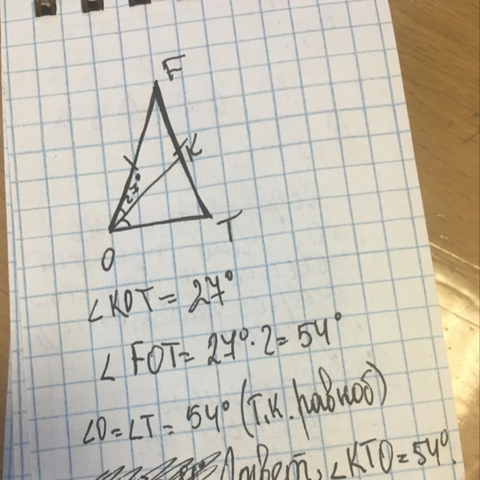 F
K
27°
O
T
∠KOT = 27°
∠ FOT = 27°·2 = 54°
∠O = ∠T = 54° (т.к. равноб)
Ответ, ∠KTO = 54°.